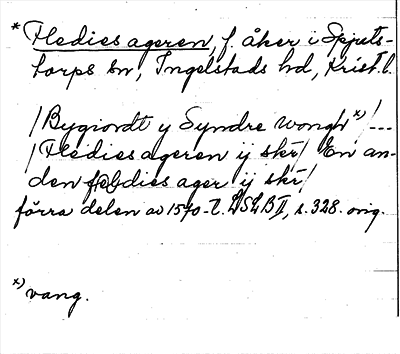 * Fledies ageren, f. åker i Spjuts-
torps sn, Ingelstads hd, Krist. l.
/Bygiordt y Syndre wongh x)/---
/Fledies ageren ij skr/ En an-
den fledies ager ij skr/
förra delen av 1570-t. LSLB II, s. 328. orig.
x) vang.